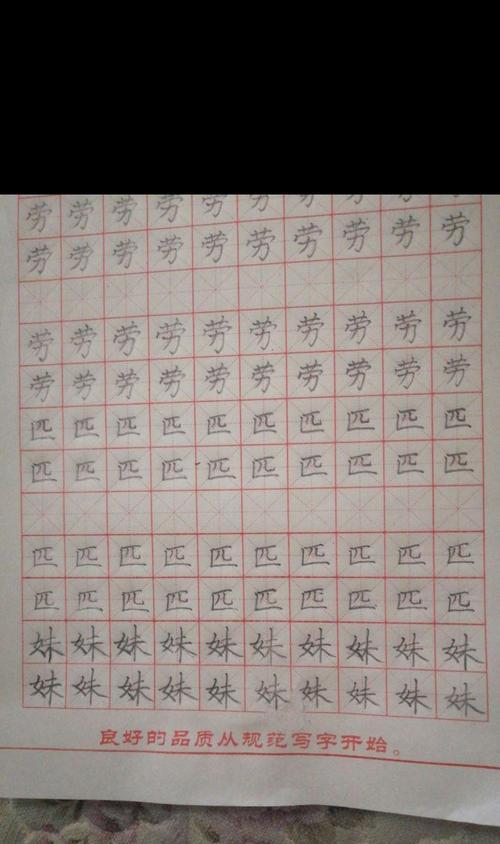 劳劳劳劳劳劳劳劳劳劳
劳劳劳劳劳劳劳劳劳劳
劳劳劳劳劳劳劳劳劳劳
劳劳劳劳劳劳劳劳劳劳
匹匹匹匹匹匹匹匹匹匹
匹匹匹匹匹匹匹匹匹匹
匹匹匹匹匹匹匹匹匹匹
匹匹匹匹匹匹匹匹匹匹
妹妹妹妹妹妹妹妹妹妹
妹妹妹妹妹妹妹妹妹妹
良好的品质从规范写字开始。